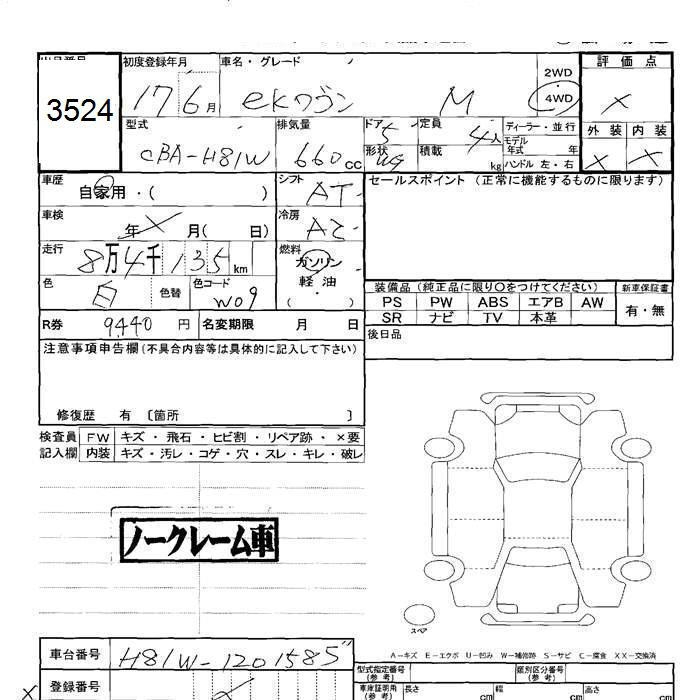 出品番号 3524
初度登録年月 17 6 月
車名・グレード ekワゴン M
2WD
4WD
評価点 ×
外装 内装
× ×
型式 CBA-H81W
排気量 660 cc
ドア 5
形状 WG
定員 4人
積載 kg
ディーラー・並行
モデル年式 年
ハンドル 左・右
車歴 自家用・( )
シフト AT
セールスポイント (正常に機能するものに限ります)
車検 年 × 月( 日)
冷房 AC
走行 8万4千135 km
燃料 ガソリン
軽・油
( )
色 白 色替 色コード W09
装備品 (純正品に限り○をつけてください) 新車保証書
PS PW ABS エアB AW
SR ナビ TV 本革 有・無
R券 9440 円 名変期限 月 日
後日品
注意事項申告欄(不具合内容等は具体的に記入して下さい)
修復歴 有 〔箇所 〕
検査員 FW キズ・飛石・ヒビ割・リペア跡・×要
記入欄 内装 キズ・汚レ・コゲ・穴・スレ・キレ・破レ
ノークレーム車
スペア
A-キズ E-エクボ U-凹み W-補修跡 S-サビ C-腐食 XX-交換済
車台番号 H81W-1201585
登録番号
×
型式指定番号(参考) 類別区分番号(参考)
車庫証明用(参考) 長さ cm 幅 cm 高さ cm